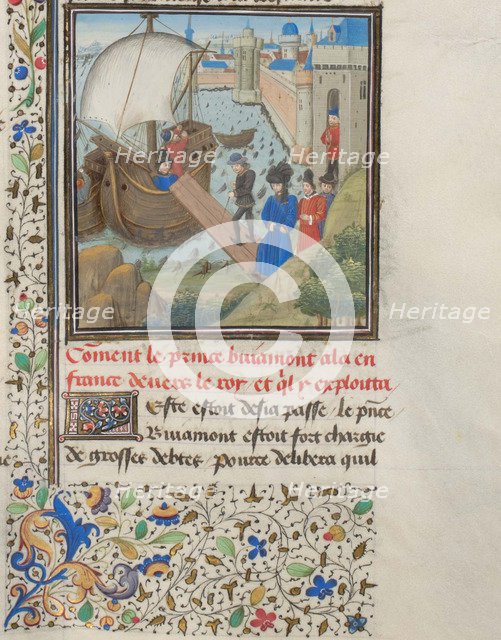 Coment le prince buiamont ala en
france deuers le roy et ql y exploitta
Este estoit desia passe le pnce
Buiamont estoit fort chargie
de grosses debtes pource delibera quil
Heritage
Heritage
Heritage
Heritage
Heritage
Heritage
Heritage
Heritage
C